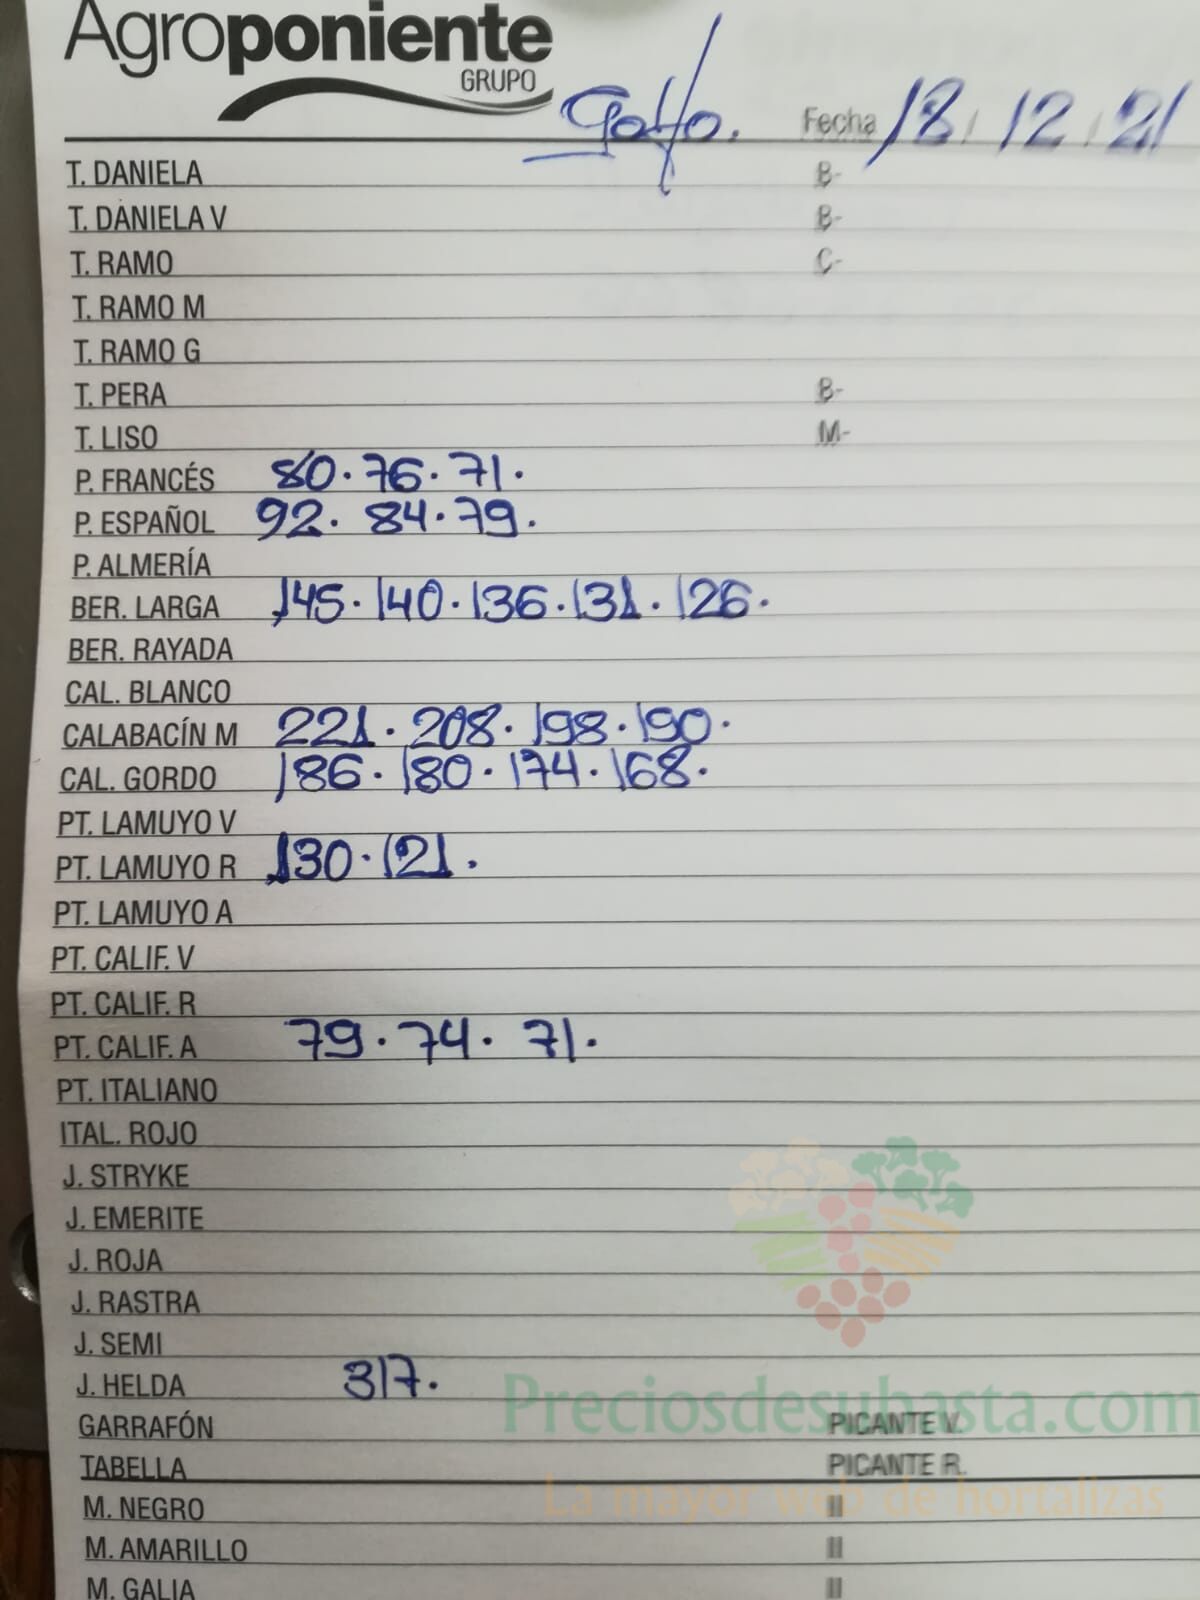 Agroponiente
GRUPO
Golfo. Fecha 18/12/21
T. DANIELA B-
T. DANIELA V B-
T. RAMO C-
T. RAMO M
T. RAMO G
T. PERA B-
T. LISO M-
P. FRANCÉS 80. 76. 71.
P. ESPAÑOL 92. 84. 79.
P. ALMERÍA
BER. LARGA 145. 140. 136. 131. 126.
BER. RAYADA
CAL. BLANCO
CALABACÍN M 221. 208. 198. 190.
CAL. GORDO 186. 180. 174. 168.
PT. LAMUYO V
PT. LAMUYO R 130. 121.
PT. LAMUYO A
PT. CALIF. V
PT. CALIF. R
PT. CALIF. A 79. 74. 71.
PT. ITALIANO
ITAL. ROJO
J. STRYKE
J. EMERITE
J. ROJA
J. RASTRA
J. SEMI
J. HELDA 317.
Preciosdesubasta.com
GARRAFÓN PICANTE V.
TABELLA PICANTE R.
La mayor web de hortalizas
M. NEGRO II
M. AMARILLO II
M. GALIA II